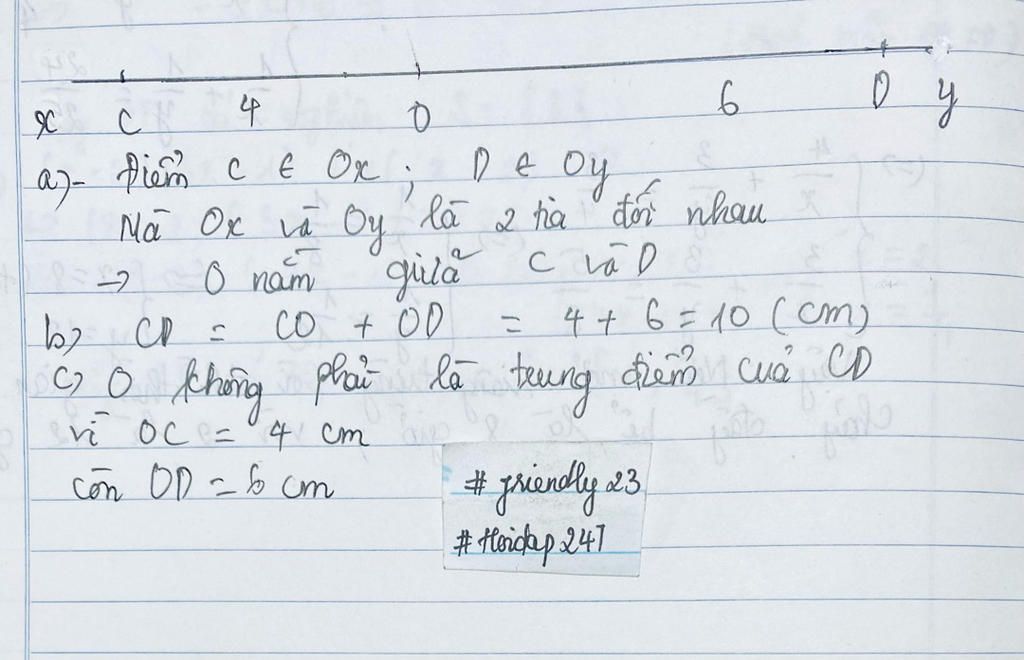 x C 4 O 6 D y
a)- Điểm C ∈ Ox ; D ∈ Oy
Mà Ox và Oy là 2 tia đối nhau
=> O nằm giữa C và D
b) CD = CO + OD = 4 + 6 = 10 (cm)
c) O không phải là trung điểm của CD
vì OC = 4 cm
còn OD = 6 cm
# friendly 23
# Hoidap 247